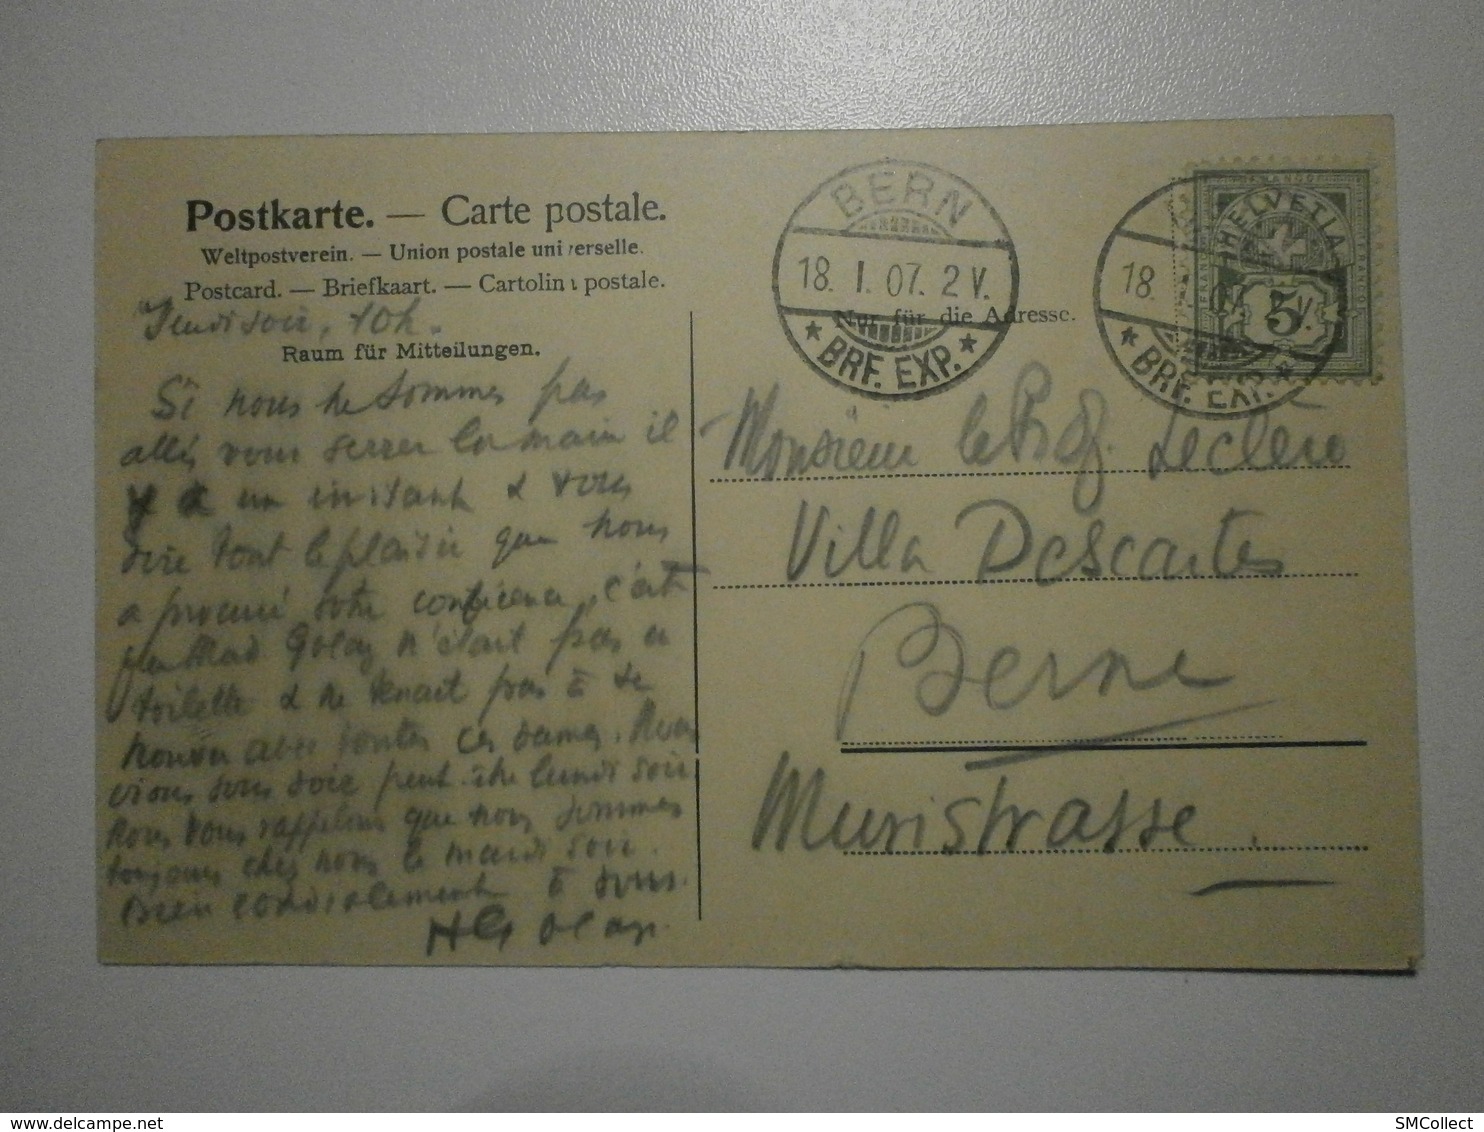 Postkarte. — Carte postale.
Weltpostverein. — Union postale universelle.
Postcard. — Briefkaart. — Cartolina postale.
Jeudi soir, 10h.
Raum für Mitteilungen.
Si nous ne sommes pas
allés vous serrer la main il
y a un instant & vous
dire tout le plaisir que nous
a procuré votre conférence, c'est
que Mad Golay n'était pas en
toilette & ne tenait pas à se
trouver avec toutes ces dames. Nous
irons vous voir peut-être lundi soir
Nous vous rappelons que nous sommes
toujours chez nous le mardi soir.
Bien cordialement à vous.
HGolay.
BERN
18. I. 07. 2 V.
★ BRF. EXP. ★
Nur für die Adresse.
FRANCO
HELVETIA
5
18. V.
★ BRF. EXP. ★
Monsieur le Prof. Leclère
Villa Descartes
Berne
Muristrasse.
SMCollect